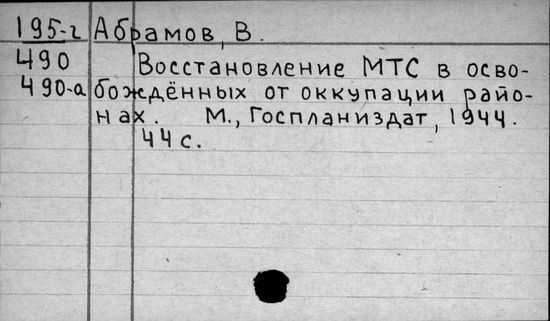 195-г Абрамов, В.
490 Восстановление МТС в осво-
490-а бождённых от оккупации райо-
нах. М., Госпланиздат, 1944.
44 с.